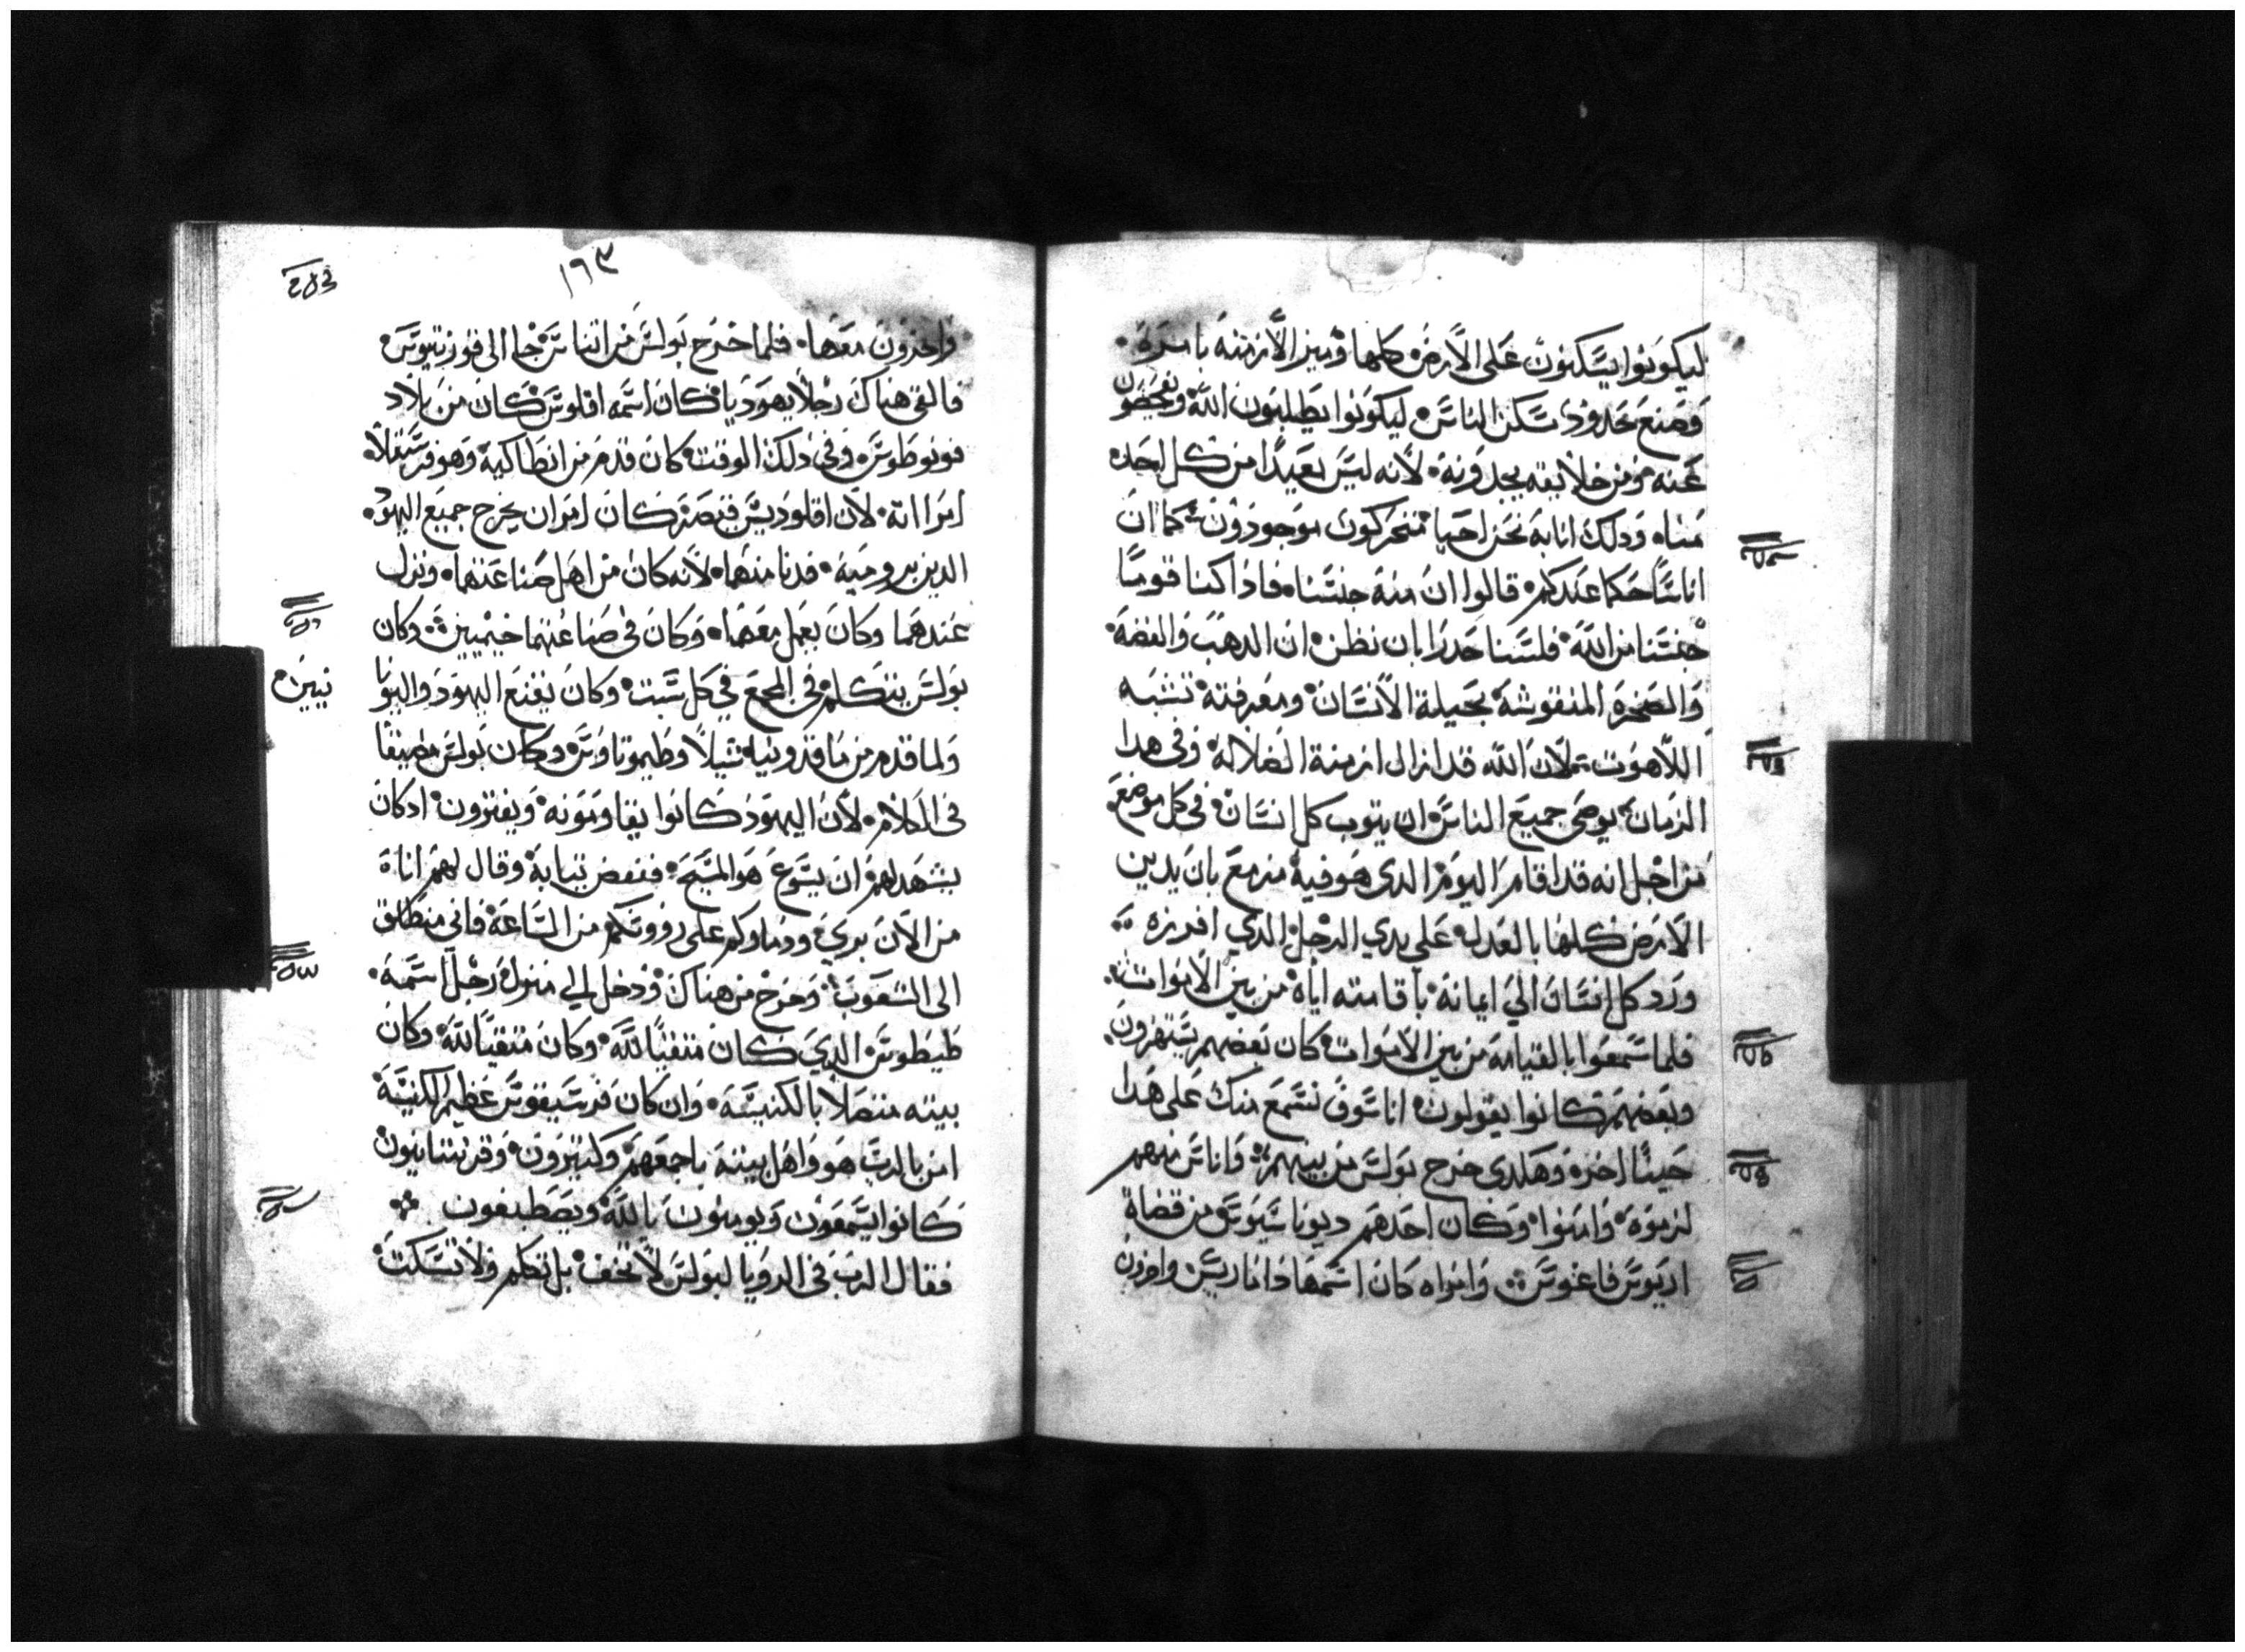 ليكونوا يسكنون على الارض كلها وميز الازمنة بامره
وصنع حدود سكن الناس ليكونوا يطلبون الله ويفحصون
عنه ومن خلايقه يجدونه لانه ليس بعيدا من كل احد
مناه وذلك انا به نحن احيا متحركون موجودون كما ان
اناسا حكما عندكم قالوا ان منه جنسنا فاذا كنا قوما
جنسنا من الله فلسنا حدرا بان نظن ان الدهب والفضه
والصخره المنقوشه بحيلة الانسان ومعرفته تشبه
اللاهوت لان الله قد ازال ازمنة الضلاله وفى هدا
الزمان يوصى جميع الناس ان يتوب كل انسان فى كل موضع
من اجل انه قد اقام اليوم الدى هو فيه مزمع بان يدين
الارض كلها بالعدل على يدي الرجل الدي افرزه
ورد كل انسان الي ايمانه باقامته اياه من بين الاموات
فلما سمعوا بالقيامه من بين الاموات كان بعضهم يستهزون
وبعضهم كانوا يقولون انا سوف نسمع منك على هدا
حينا اخر وهكدى خرج بولس من بينهم واناس منهم
لزموه وامنوا وكان احدهم ديوناسيوس من قضاة
اريوس فاغوس وامراه كان اسمها داماريس واخرون
١٦٣
واخرون معها فلما خرج بولس من اتناس جا الى قورنتيوس
فالتقى هناك رجلا يهوديا كان اسمه اقلوس كان من بلاد
فونوطوس وفى ذلك الوقت كان قدم من انطاكيه وهو فرسقلا
امراته لان اقلوديس قيصر كان امر ان يخرج جميع اليهود
الدين برومية فدنا منهما لانه كان من اهل صناعتهما ونزل
عندهما وكان يعمل معهما وكان فى صناعتهما خيميين وكان
بولس يتكلم فى المجمع في كل سبت وكان يقنع اليهود واليونا
نيين
ولما قدم من ماقدونيه شيلا وطيموتاوس وكان بولس مضيقا
فى الكلام لان اليهود كانوا يقاومونه ويفترون اد كان
يشهد لهم ان يسوع هو المسيح فنفض تيابه وقال لهم انا
من الان بري ودماوكم على رووسكم من الساعه فاني منطلق
الى الشعوب وخرج من هناك ودخل الي منزل رجل اسمه
طيطوس الدي كان متقيا لله وكان متقيا لله وكان
بيته متصلا بالكنيسه وان كان قرسيفوس عظيم الكنيسه
امن بالرب هو واهل بيته باجمعهم وكتيرون وقرنتانيون
كانوا يسمعون ويومنون بالله ويصطبغون
فقال الرب فى الرويا لبولس لا تخف بل تكلم ولا تسكت